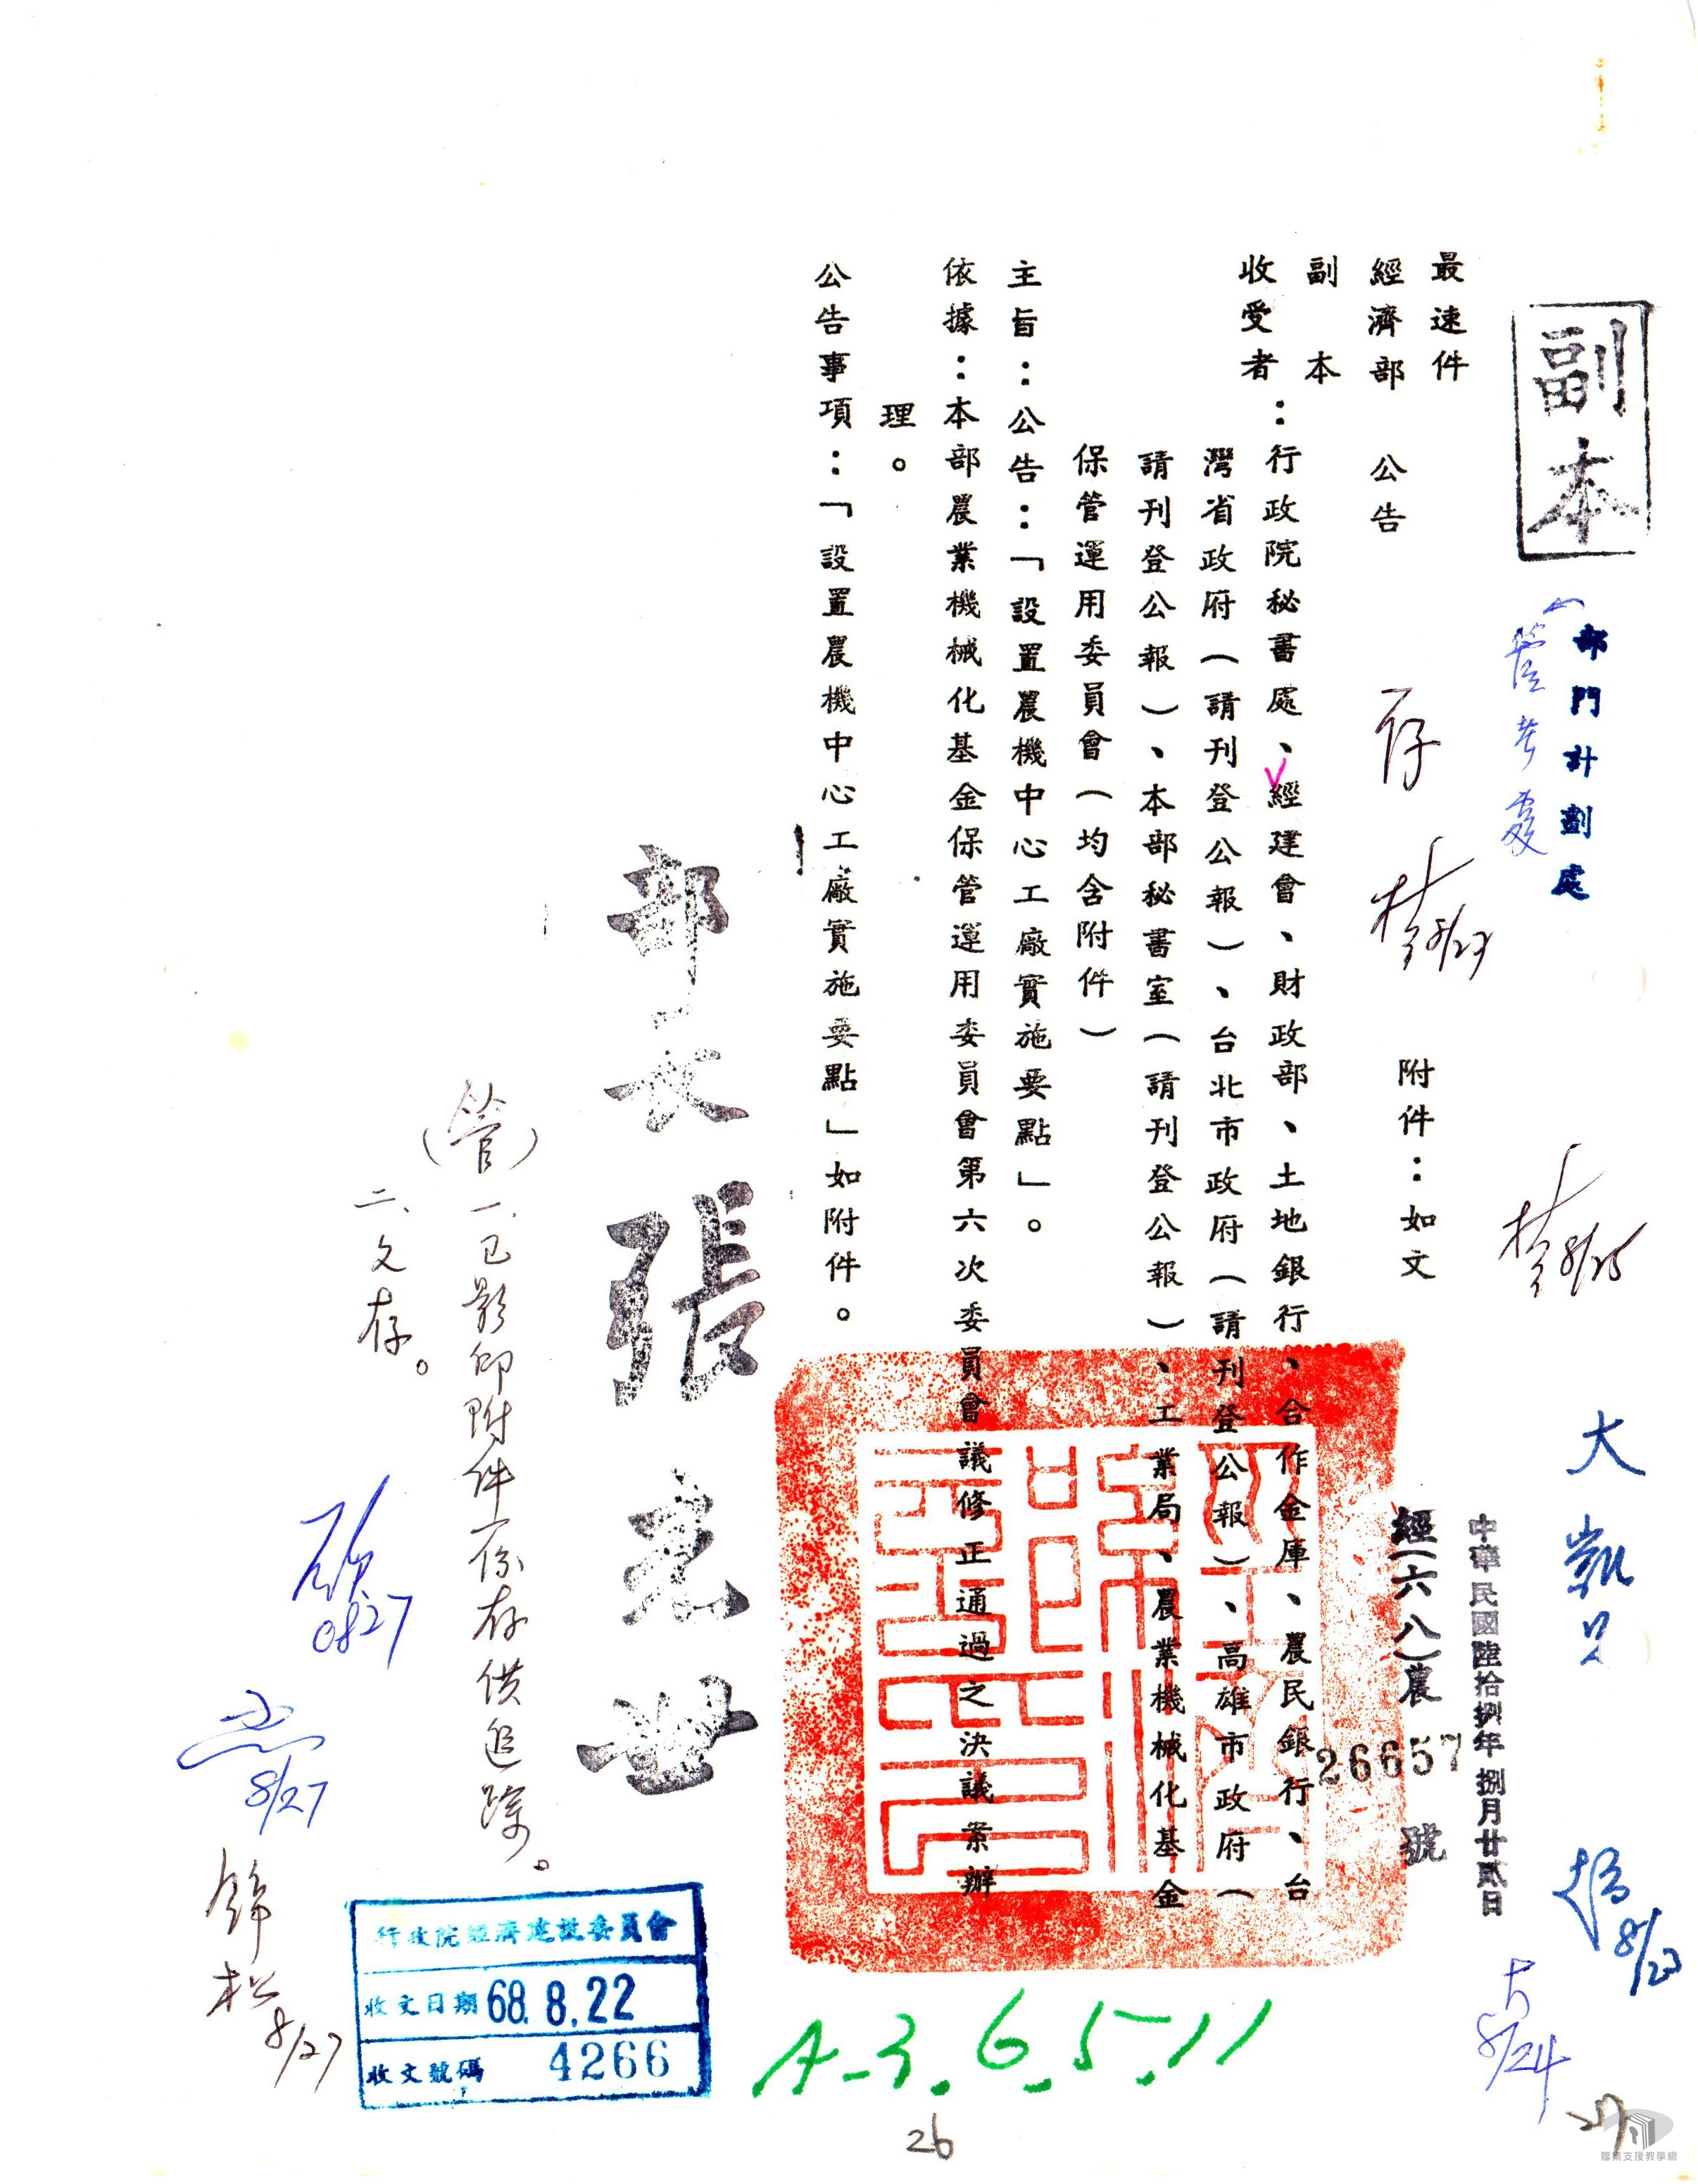 副本
部門計劃處
管考處
最速件
經濟部 公告
附件：如文
中華民國陸拾捌年捌月廿貳日
經(六八)農26657號
副本
收受者：行政院秘書處、經建會、財政部、土地銀行、合作金庫、農民銀行、台
灣省政府（請刊登公報）、台北市政府（請刊登公報）、高雄市政府（
請刊登公報）、本部秘書室（請刊登公報）、工業局、農業機械化基金
保管運用委員會（均含附件）
主旨：公告：「設置農機中心工廠實施要點」。
依據：本部農業機械化基金保管運用委員會第六次委員會會議修正通過之決議案辦
理。
公告事項：「設置農機中心工廠實施要點」如附件。
部長 張光世
存
8/27
8/25
8/23
8/24
(管)一、已影印附件一份存供追蹤。
二、文存。
0827
8/27
錦松
8/27
行政院經濟建設委員會
收文日期 68.8.22
收文號碼 4266
A-3.6.5.11
26
27
檔案支援教學網